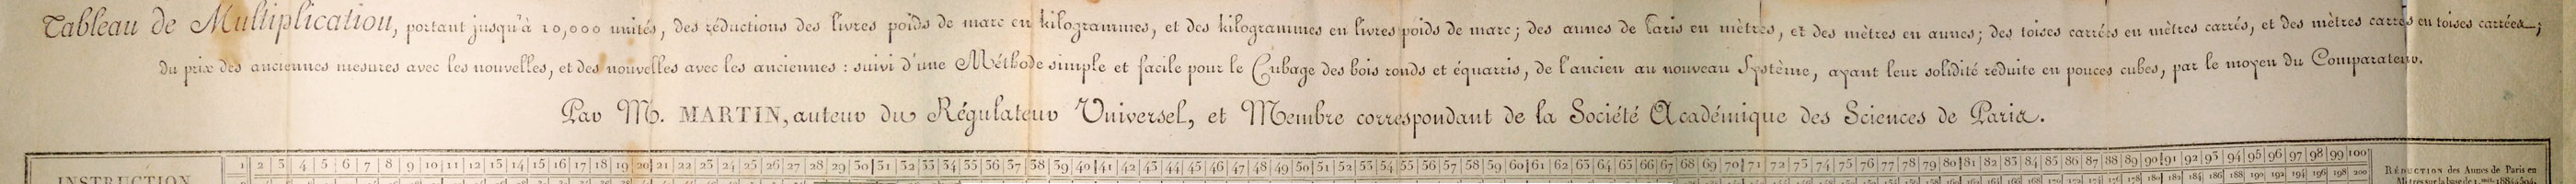 Tableau de Multiplication, portant jusqu'à 10,000 unités, des réductions des livres poids de marc en kilogrammes, et des kilogrammes en livres poids de marc; des aunes de Paris en mètres, et des mètres en aunes; des toises carrées en mètres carrés, et des mètres carrés en toises carrées;
du prix des anciennes mesures avec les nouvelles, et des nouvelles avec les anciennes : suivi d'une Méthode simple et facile pour le Cubage des bois ronds et équarris, de l'ancien au nouveau Système, ayant leur solidité réduite en pouces cubes, par le moyen du Comparateur.
Par M. MARTIN, auteur du Régulateur Universel, et Membre correspondant de la Société Académique des Sciences de Paris.
1 2 3 4 5 6 7 8 9 10 11 12 13 14 15 16 17 18 19 20 21 22 23 24 25 26 27 28 29 30 31 32 33 34 35 36 37 38 39 40 41 42 43 44 45 46 47 48 49 50 51 52 53 54 55 56 57 58 59 60 61 62 63 64 65 66 67 68 69 70 71 72 73 74 75 76 77 78 79 80 81 82 83 84 85 86 87 88 89 90 91 92 93 94 95 96 97 98 99 100
INSTRUCTION
RÉDUCTION des Aunes de Paris en
178 180 182 184 186 188 190 192 194 196 198 200